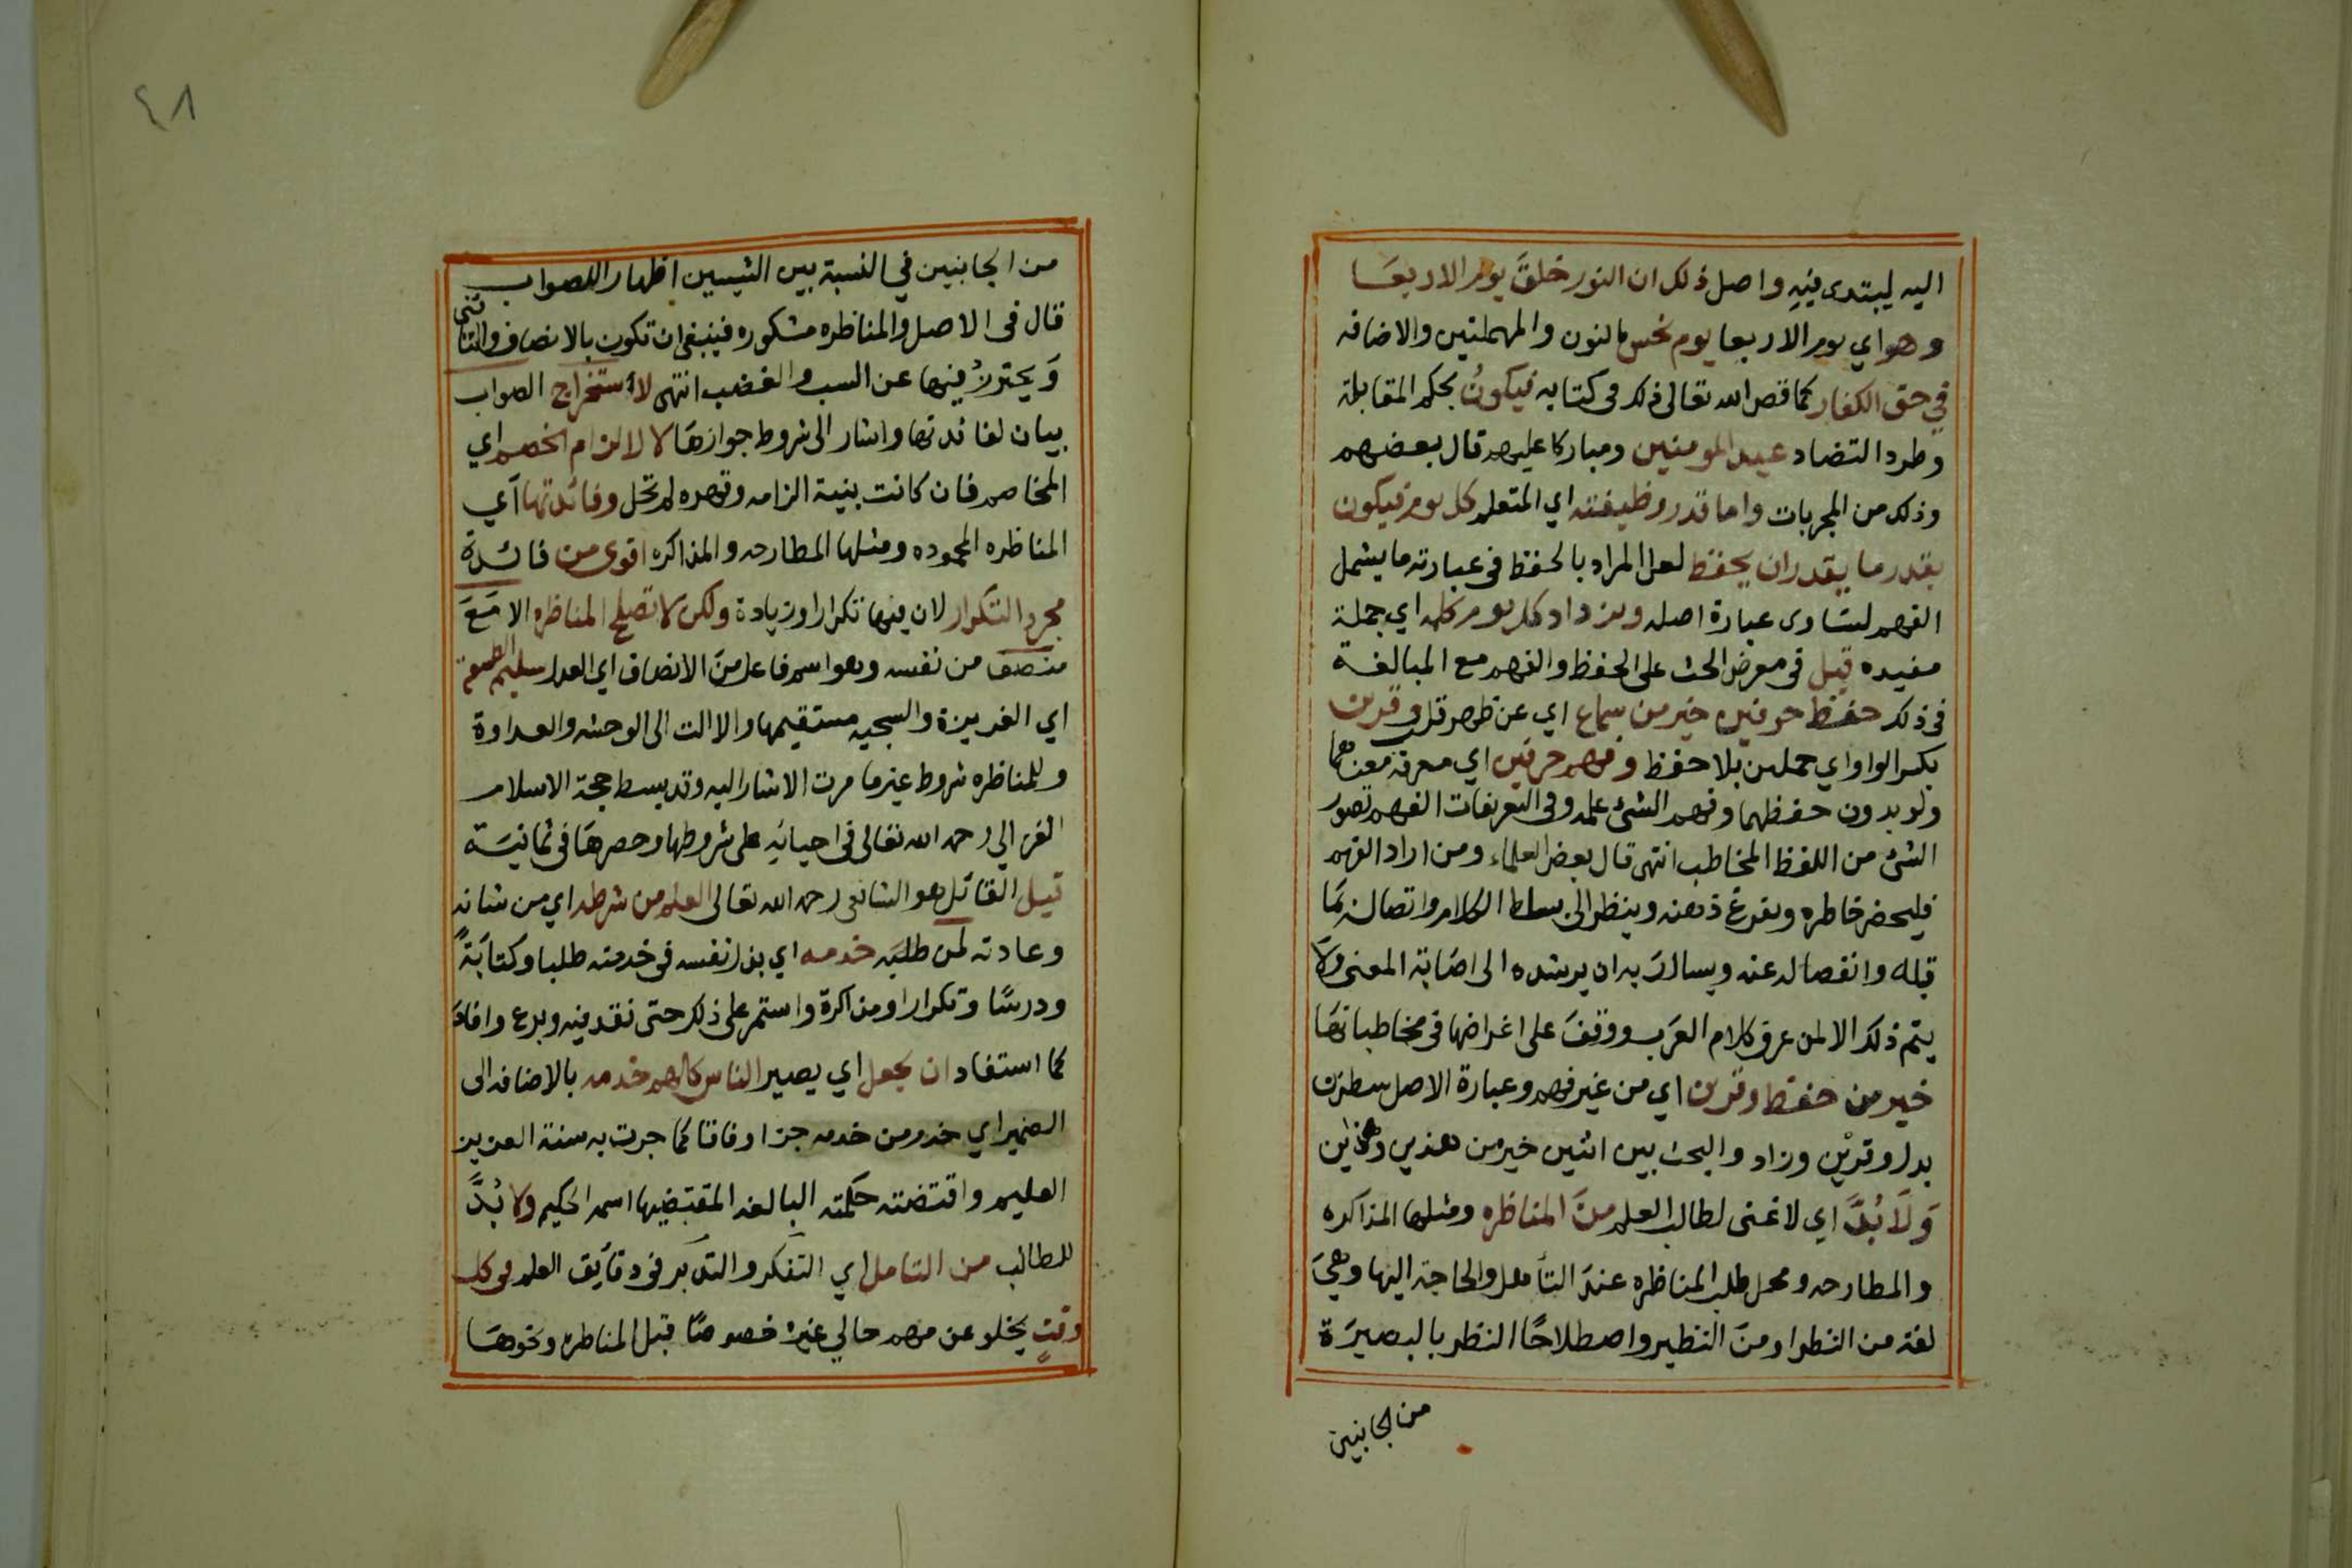 اليه ليبتدى فيه واصل ذلك ان النور خلق يوم الاربعا
وهو اي يوم الاربعا يوم نحس بالنون والمهملتين والاضافه
في حق الكفار كما قص الله تعالى ذلك في كتابه فيكون بحكم المقابلة
وطرد التضاد عيد المومنين ومباركا عليهم قال بعضهم
وذلك من المجربات واما قدر وظيفته اي المتعلم كل يوم فيكون
بقدر ما يقدران يحفظ لعل المراد بالحفظ في عبارته ما يشمل
الفهم لتساوى عبارة اصله ويزداد كل يوم كلمه اي جملة
مفيده قيل في معرض الحث على الحفظ والفهم مع المبالغة
في ذلك حفظ حرفين خير من سماع اي عن ظهر قلب وقرين
بكسر الواو اي حملين بلا حفظ وفهم حرفين اي معرفة معناهما
ولو بدون حفظهما وفهم الشئ علمه وفي التعريفات الفهم تصور
الشئ من اللفظ المخاطب انتهى قال بعض العلماء ومن اراد الفهم
فليحضر خاطره ويفرغ ذهنه وينظر الى بساط الكلام واتصاله بما
قبله وانفصاله عنه ويسال ربه ان يرشده الى اصابة المعنى ولا
يتم ذلك الا لمن عرف كلام العرب ووقف على اغراضها في مخاطباتها
خير من حفظ وقرين اي من غير فهم وعبارة الاصل سطرين
بدل وقرين وزاد والبحث بين اثنين خير من هذين وهذين
ولا بد اي لا غنى لطالب العلم من المناظره ومثلها المذاكره
والمطارحه ومحل طلب المناظره عند التأهل والحاجة اليها وهي
لغة من النظر او من النظير واصطلاحا النظر بالبصيرة
من الجانبين
٤٨
من الجانبين في النسبة بين الشيين اظهارا للصواب
قال في الاصل والمناظره مشكوره فينبغي ان تكون بالانصاف والتانى
ويحترز فيها عن السب والغضب انتهى لاستخراج الصواب
بيان لفائدتها واشار الى شروط جوازها لا لالزام الخصم اي
المخاصم فان كانت بنية الزامه وقهره لم تحل وفائدتها اي
المناظره المحموده ومثلها المطارحه والمذاكره اقوى من فائدة
مجرد التكرار لان فيها تكرارا وزيادة ولكن لا تصلح المناظره الا مع
منصف من نفسه وهو اسم فاعل من الانصاف اي العدل سليم الطبيعة
اي الغريزة والسجيه مستقيمها والا الت الى الوحشه والعداوة
وللمناظره شروط غير ما مرت الاشاره اليه وقد بسط حجة الاسلام
الغزالي رحمه الله تعالى في احيائه على شروطها وحصرها في ثمانية
قيل القائل هو الشافعي رحمه الله تعالى العلم من شرطه اي من شانه
وعادته لمن طلبه خدمه اي بذل نفسه في خدمته طلبا وكتابة
ودرسا وتكرارا ومذاكرة واستمر على ذلك حتى نقد فيه وبرع وافاد
كما استفاد ان يجعل اي يصير الناس كلهم خدمه بالاضافه الى
الضمير اي خدم من خدمه جزا وفاقا كما جرت به سنة العزيز
العليم واقتضته حكمته البالغه المقتضيها اسمه الحكيم ولا بد
للطالب من التامل اي التفكر والتدبر في دقايق العلم في كل
وقت يخلو عن مهم حالي غيره خصوصا قبل المناظره ونحوها